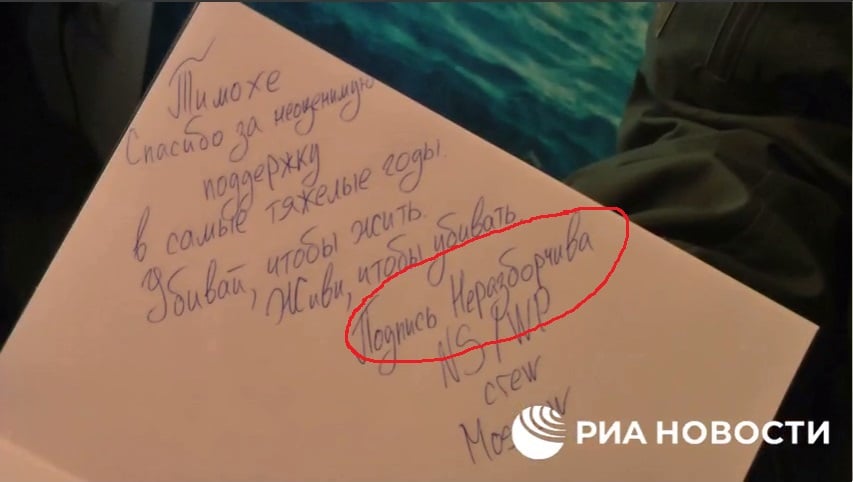 Тимохе
Спасибо за неоценимую
поддержку
в самые тяжелые годы.
Убивай, чтобы жить.
Живи, чтобы убивать.
Подпись Неразборчива
NS/WP
crew
РИА НОВОСТИ